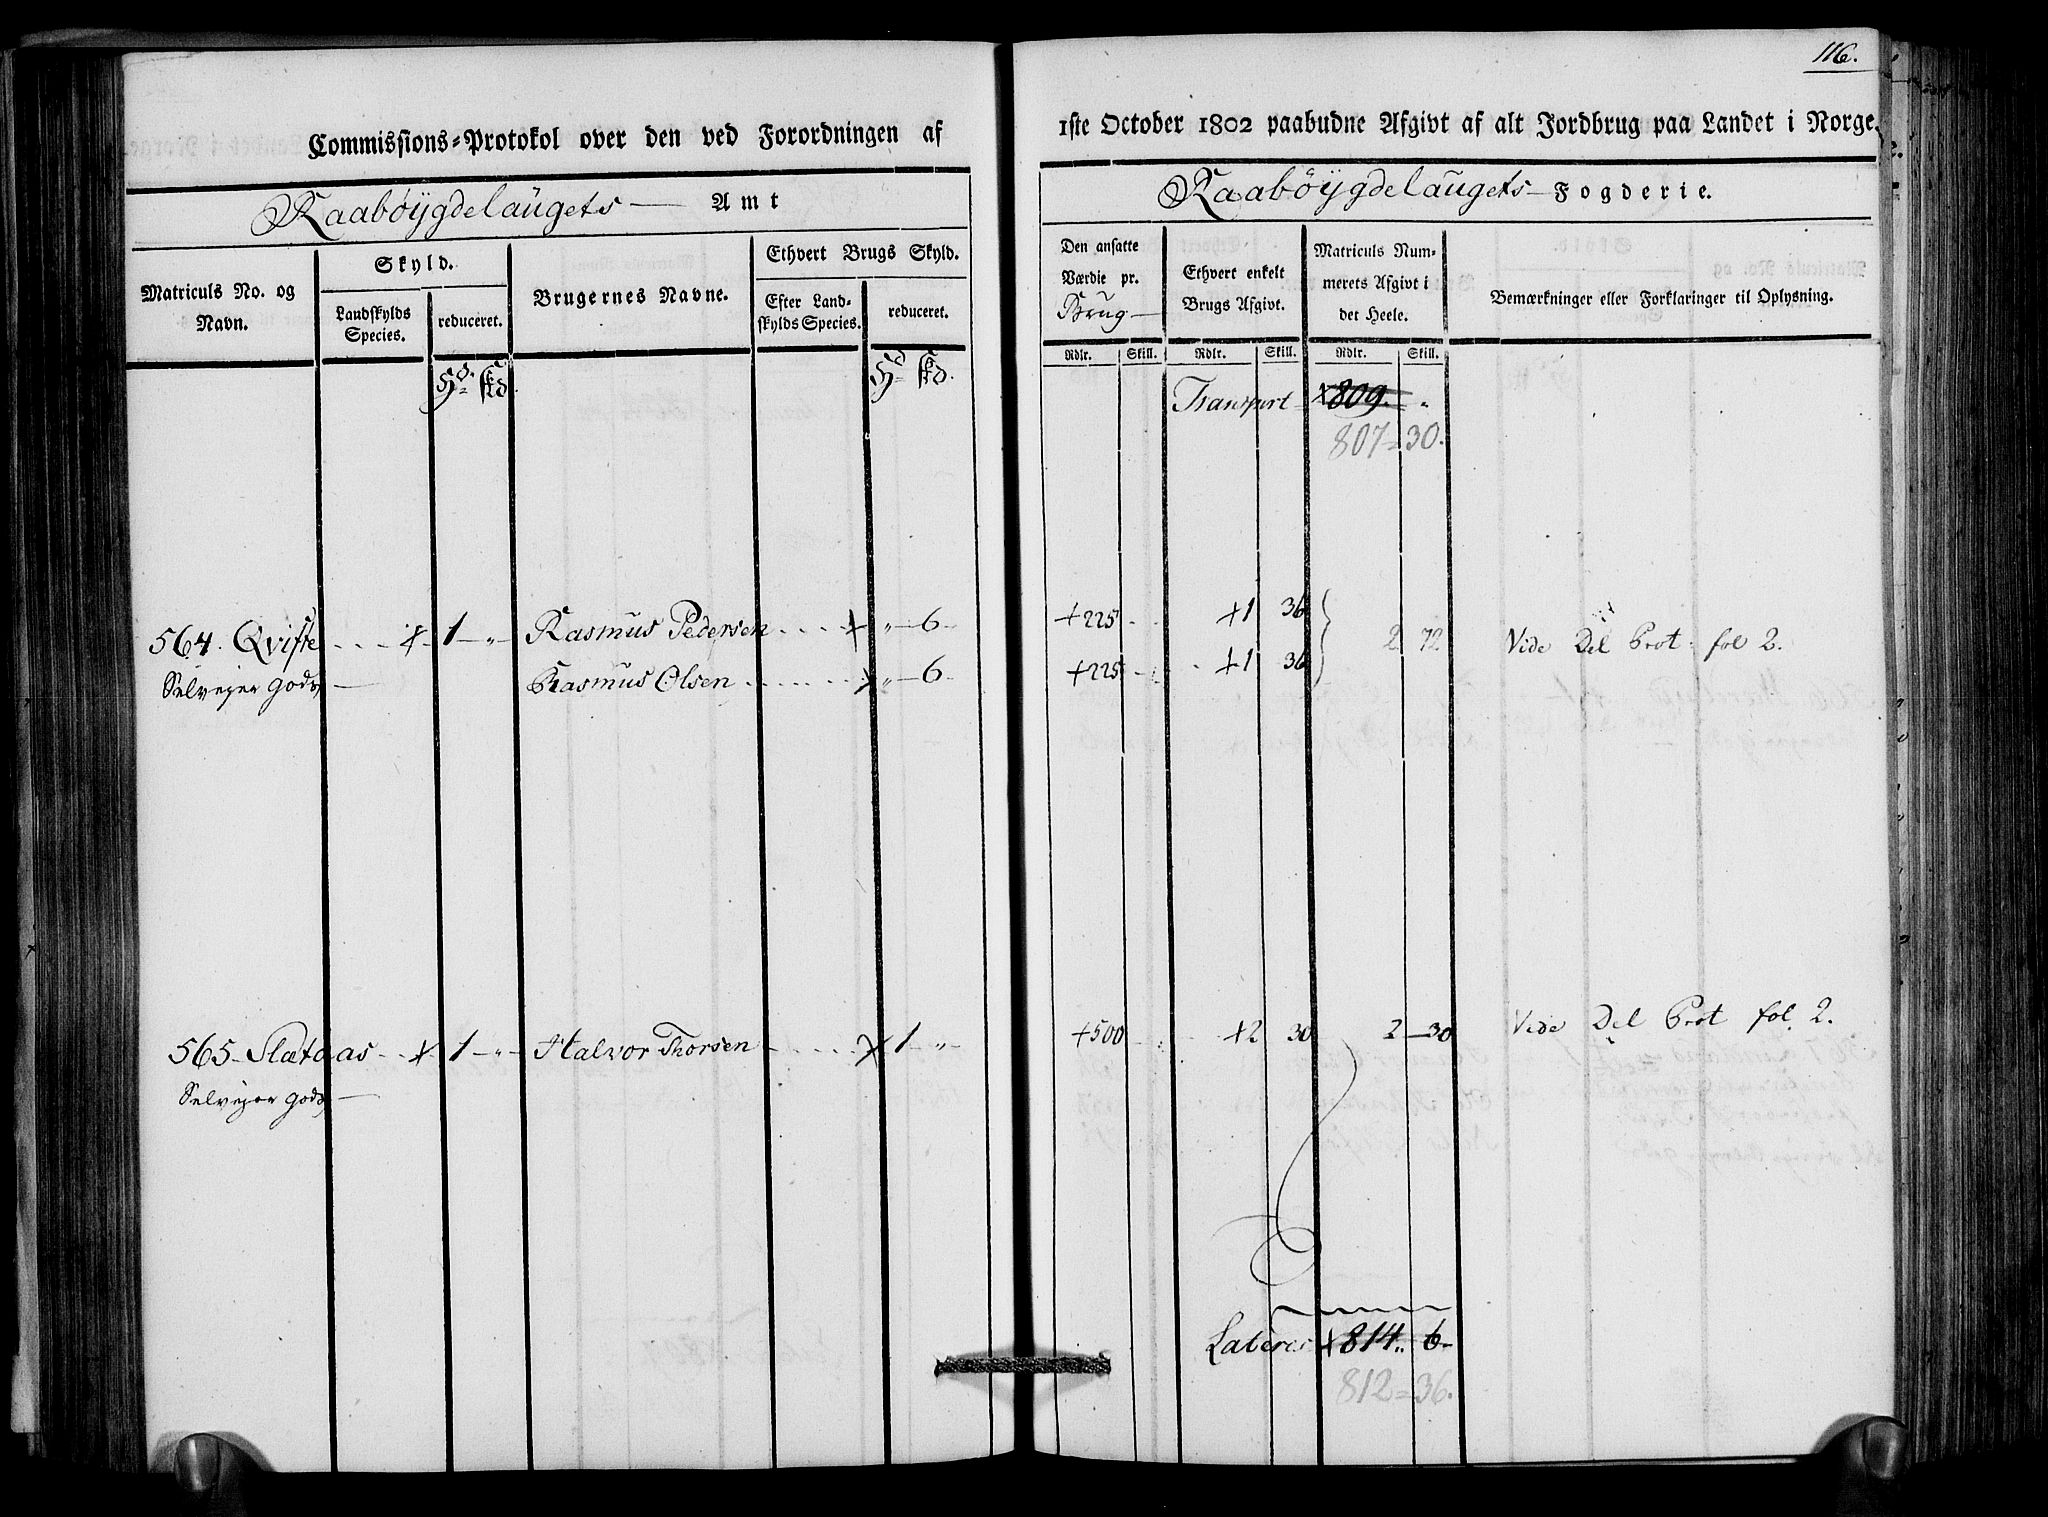 Commissions=Protokol over den ved Forordningen af
Raabøygdelaugets Amt
Matriculs No. og Navn.
Skyld.
Landskylds Species.
reduceret.
Brugernes Navne.
Ethvert Brugs Skyld.
Efter Landskylds Species.
reduceret.
Hd. skd. Hd. skd.
564. Qvifte .... + 1 - „ - Rasmus Pedersen .... + „ - 6 -
Selveyer Gods - Rasmus Olsen ........ + „ - 6 -
565 Slætaas .. + 1 - „ - Halvor Thorsen ...... + 1 - „ -
Selveyer Gods -
116.
1ste October 1802 paabudne Afgivt af alt Jordbrug paa Landet i Norge.
Raabøygdelaugets Fogderie.
Den ansatte Værdie pr. Brug
Ethvert enkelt Brugs Afgivt.
Matriculs Nummerets Afgivt i det Heele.
Bemærkninger eller Forklaringer til Oplysning.
Rdlr. Skill. Rdlr. Skill. Rdlr. Skill.
Transport + 809. „
807 = 30.
+ 225 .. + 1 36 } 2 72 Vide Del Prot: fol 2.
+ 225 .. + 1 36
+ 500 .. + 2 30 2 - 30 Vide Del Prot fol. 2.
Lateres + 814 „ 6 -
812 = 36.